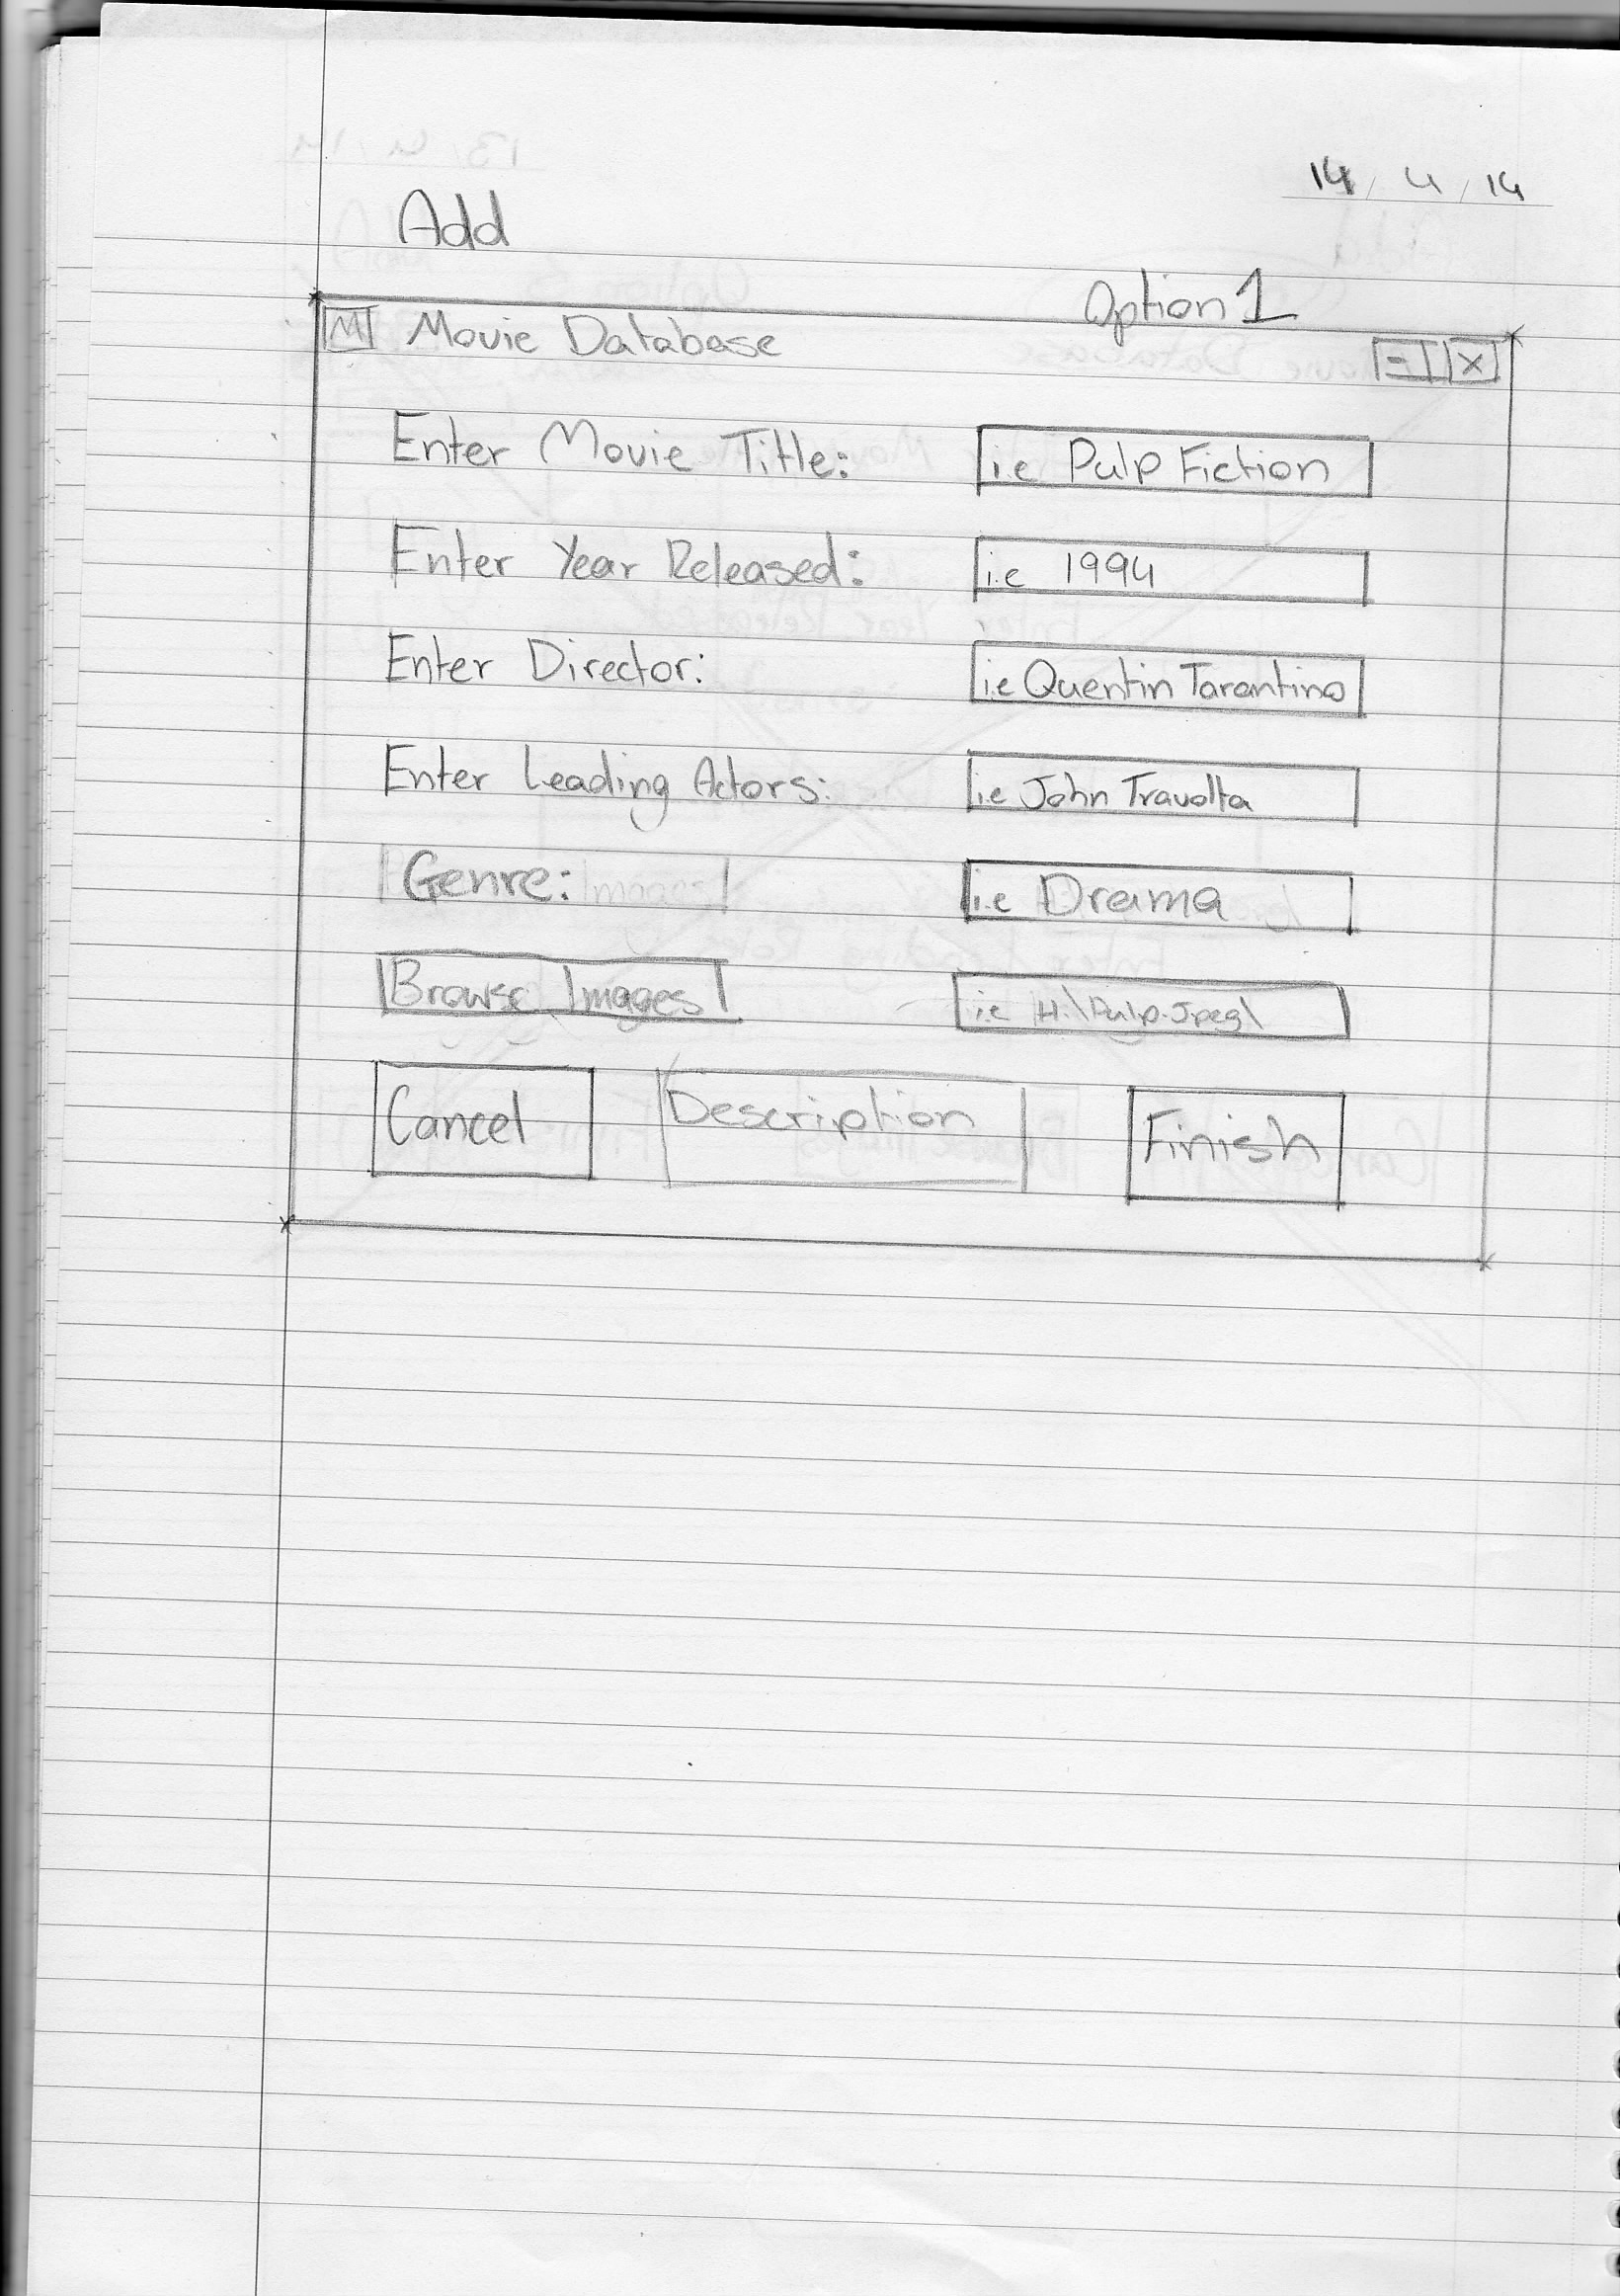 14/4/14
Add
Option 1
M Movie Database - X
Enter Movie Title: i.e Pulp Fiction
Enter Year Released: i.e 1994
Enter Director: i.e Quentin Tarantino
Enter Leading Actors: i.e John Travolta
Genre: i.e Drama
Browse Images i.e H:\Pulp.Jpeg\
Cancel Description Finish